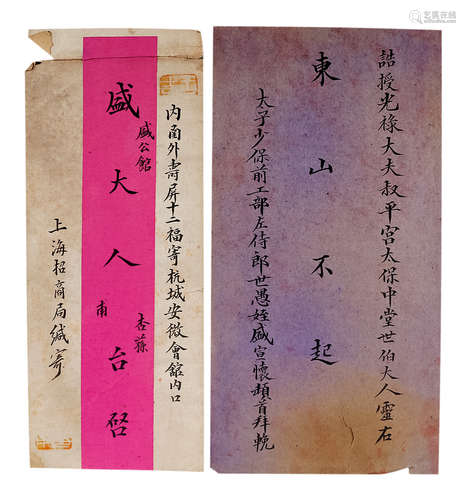 内函外壽屏十二福寄杭城安徽會館内口
盛公館
杏蓀
盛大人台啓
甫
上海招商局緘寄
誥授光禄大夫叔平宫太保中堂世伯大人靈右
東山不起
太子少保前工部左侍郎世愚姪盛宣懷頓首拜輓